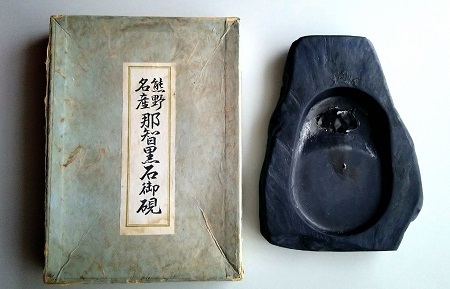 熊野名産
那智黒石御硯